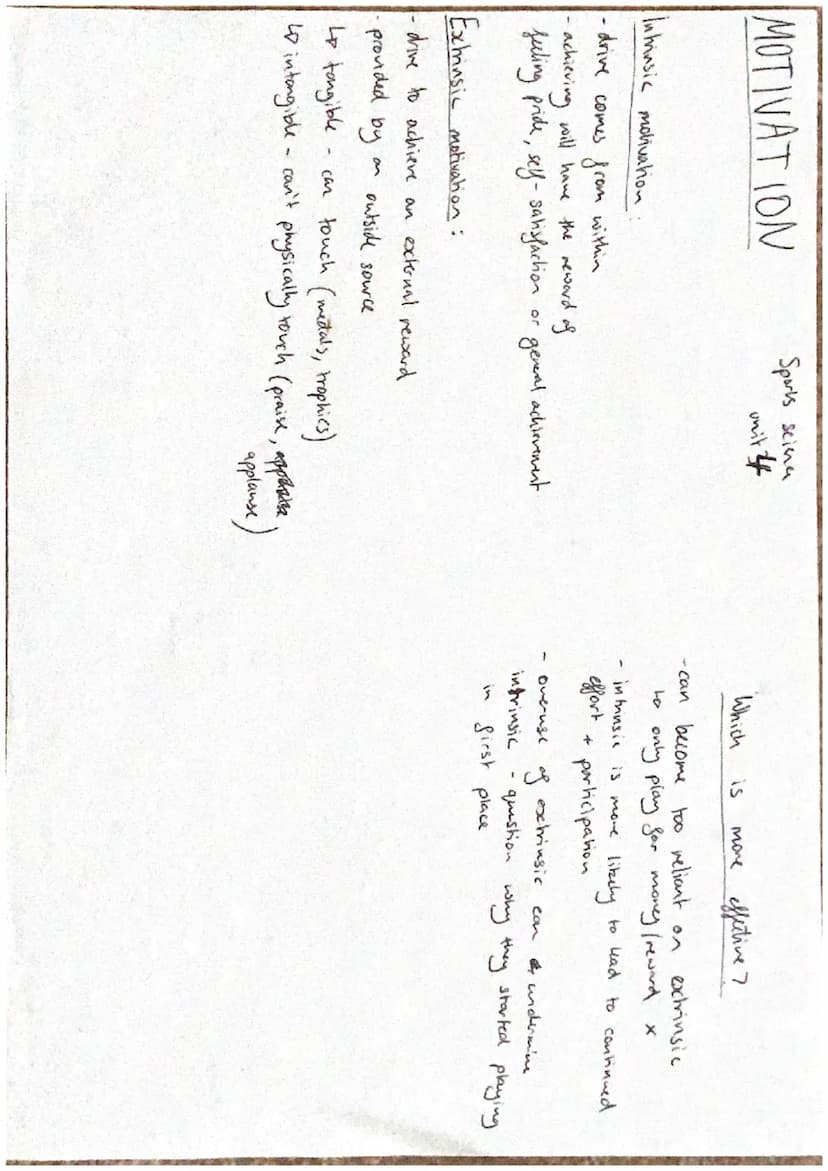 MOTIVATION
Sports scienc
unit 4
Intrinsic motivation:
- drive comes from within
- achieving will have the reward of
feeling pride, self-satisfaction or general achievement
Extrinsic motivation:
- drive to achieve an external reward
- provided by an outside source
↳ tangible - can touch (medals, trophies)
↳ intangible - can't physically touch (praise,
applause)
Which is more effective?
- can become too reliant on extrinsic
to only play for money/reward x
- intrinsic is more likely to lead to continued
effort + participation
- overuse of extrinsic can undermine
intrinsic - question why they started playing
in first place